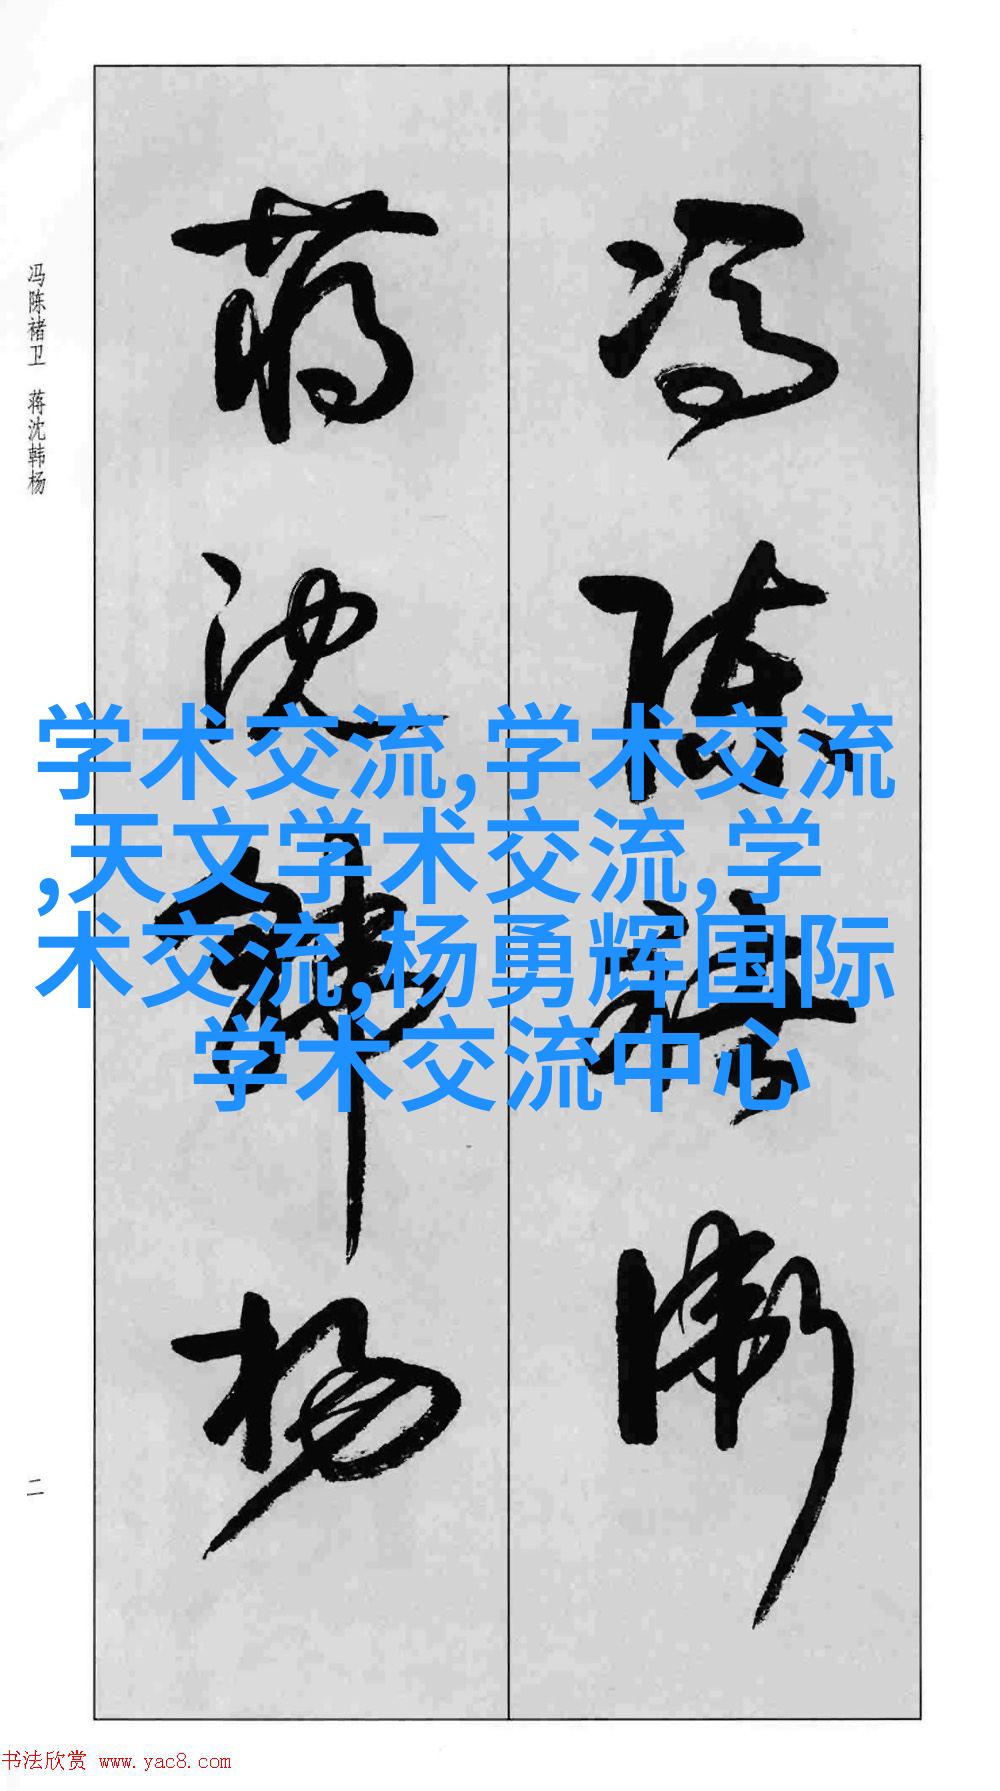 冯陈褚卫 蒋沈韩杨
冯陈褚卫
蒋沈韩杨
学术交流,学术交流
,天文学术交流,学
术交流,杨勇辉国际
学术交流中心
二
书法欣赏 www.yac8.com